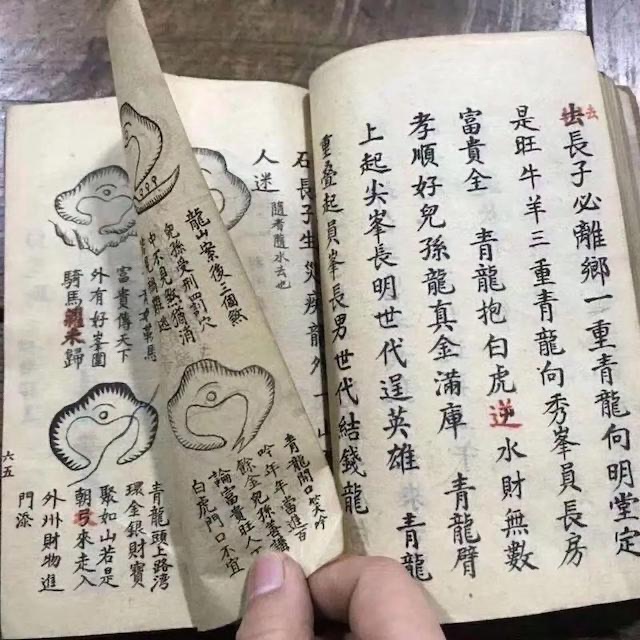 去長子必離鄉一重青龍向明堂定
是旺牛羊三重青龍向秀峯員長房
富貴全 青龍抱白虎逆水財無數
孝順好兒孫龍真金滿庫 青龍臂
上起尖峯長明世代逞英雄 青龍
重疊起員峯長男世代結錢龍
石長子生災 龍外一山
人迷 隨者隨水去也
龍山案後三個缺
兒孫受刑罰穴
中不見缺猶消
青龍開口笑大吟
吟年年當進百
餘金兒孫善講
論富貴旺人
白虎門口不宜
富貴傳天下
外有好峯圍
騎馬 歸
青龍頭上路灣
環金銀財寶
聚如山若是
朝 來走入
外州財物進
門添
六五